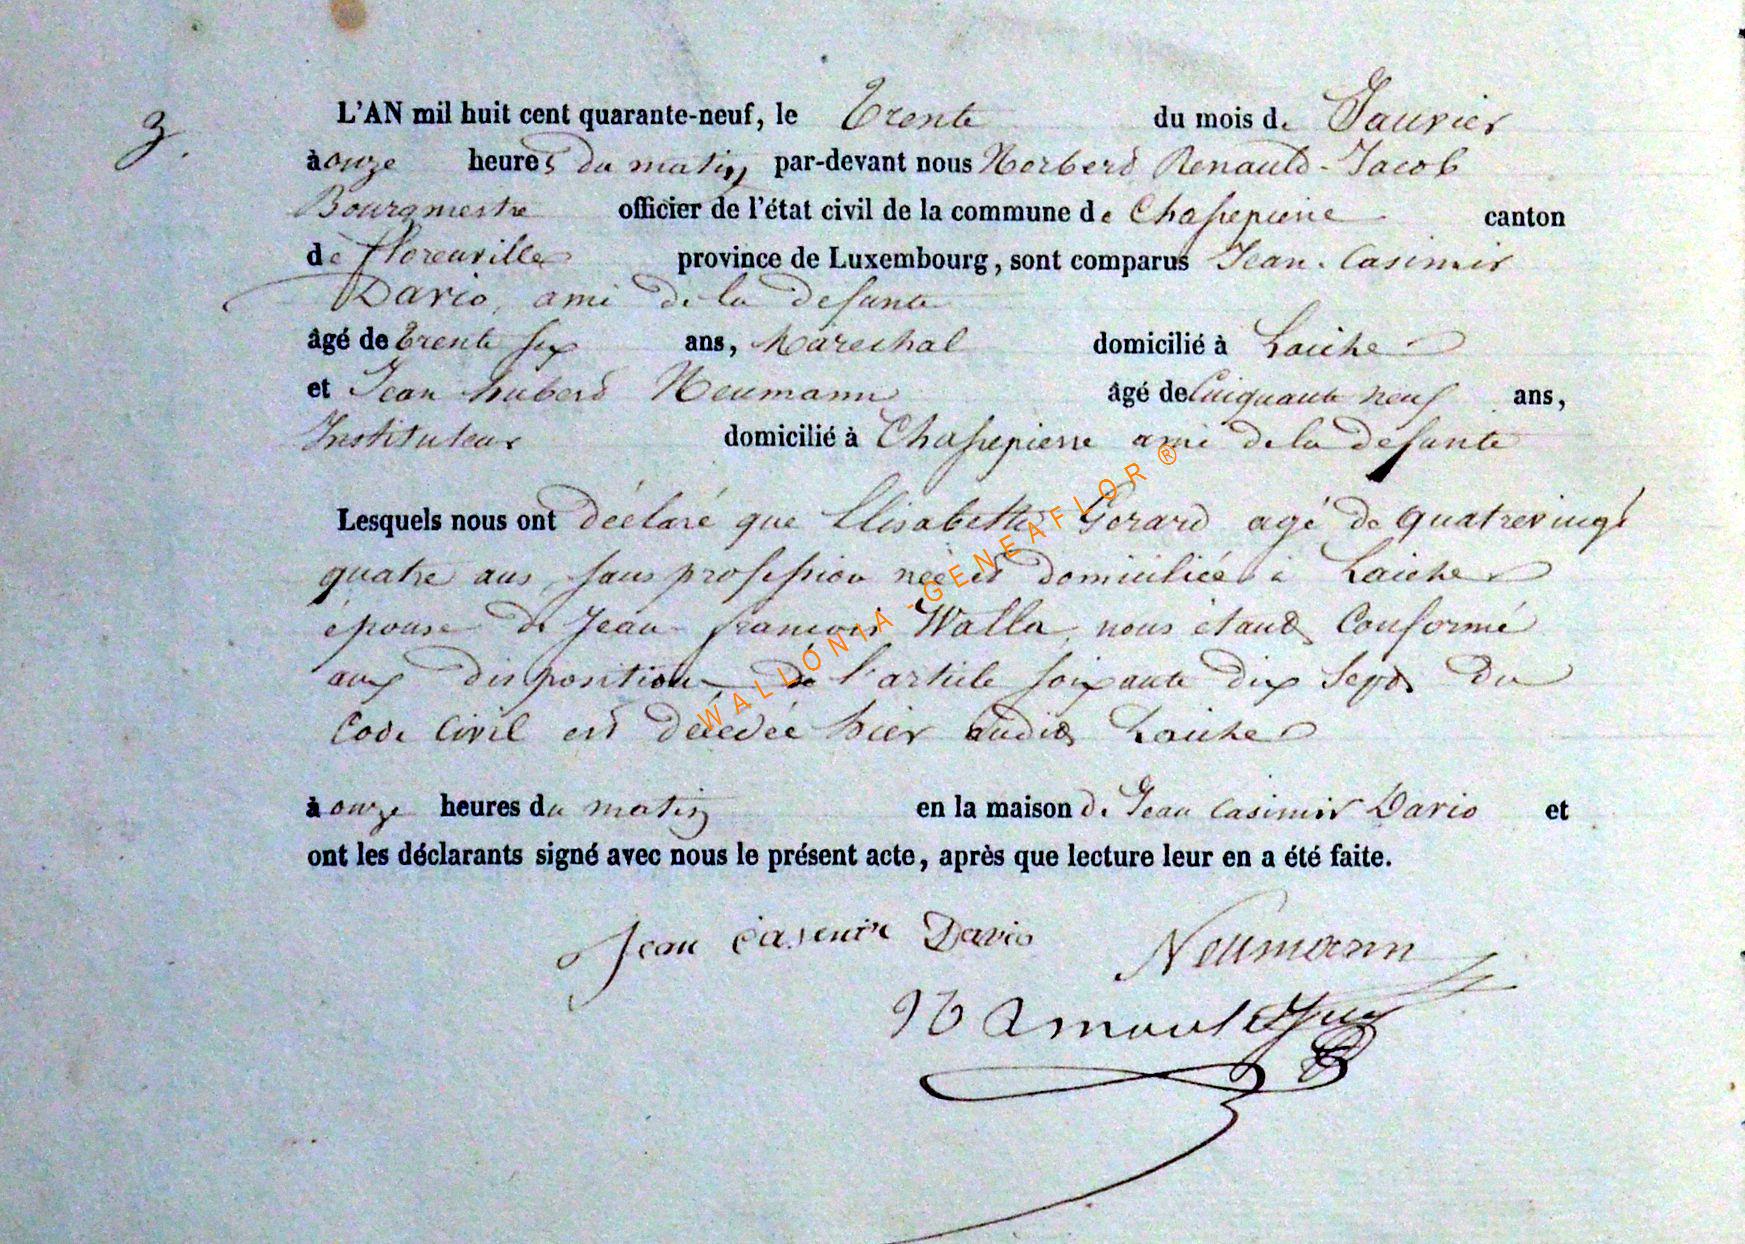 3.
L'AN mil huit cent quarante-neuf, le Trente du mois de Janvier
à onze heures du matin par-devant nous Norberd Renauld-Jacob
Bourgmestre officier de l'état civil de la commune de Chassepierre canton
de florenville province de Luxembourg, sont comparus Jean-Casimir
Dario, ami de la defunte
âgé de trente six ans, Maréchal domicilié à Laiche
et Jean hubert Neumann âgé de Cinquante neuf ans,
Instituteur domicilié à Chassepierre ami de la defunte
Lesquels nous ont déclaré que Elisabette Gerard agé de quatrevingt
quatre ans, sans profession née et domiciliée à Laiche
épouse de Jean françois Walla, nous étant Conformé
aux disposition de l'article soixante dix sept du
Code Civil est décédée hier audit Laiche
à onze heures du matin en la maison de Jean Casimir Dario et
ont les déclarants signé avec nous le présent acte, après que lecture leur en a été faite.
Jean Casimir Dario Neumann
WALLONIA-GENEAFLOR ®